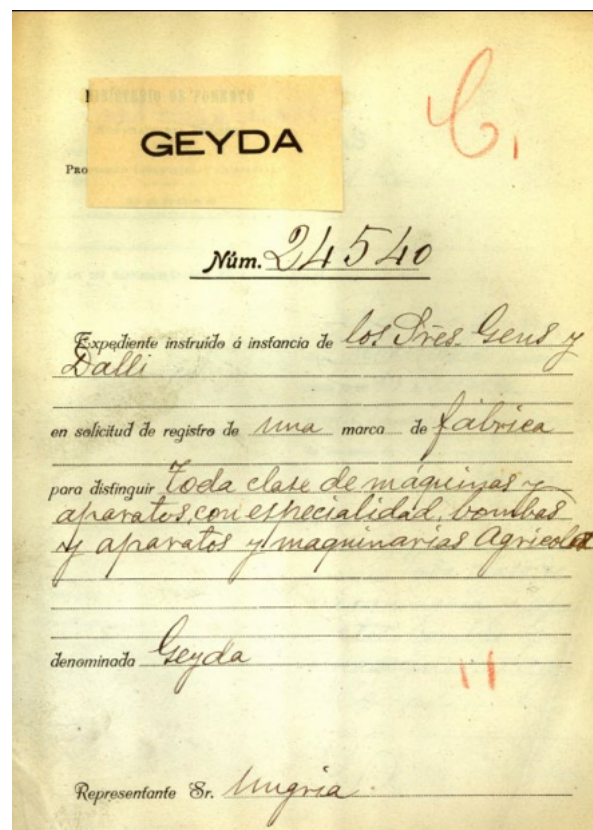 MINISTERIO DE FOMENTO
GEYDA
C.
Pro
Núm. 24540
Expediente instruído á instancia de los Sres. Gens y
Dalli
en solicitud de registro de una marca de fábrica
para distinguir toda clase de máquinas y
aparatos, con especialidad, bombas
y aparatos y maquinarias Agricolas
denominada Geyda
Representante Sr. Ungria.